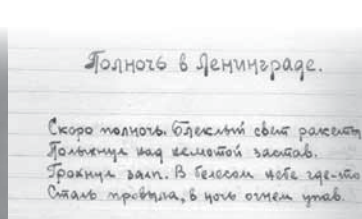 Полночь в Ленинграде.
Скоро полночь. Блеклый свет ракеты
Полыхнул над немотой застав.
Грохнул залп. В белесом небе где-то
Сталь провыла, в ночь огнем упав.